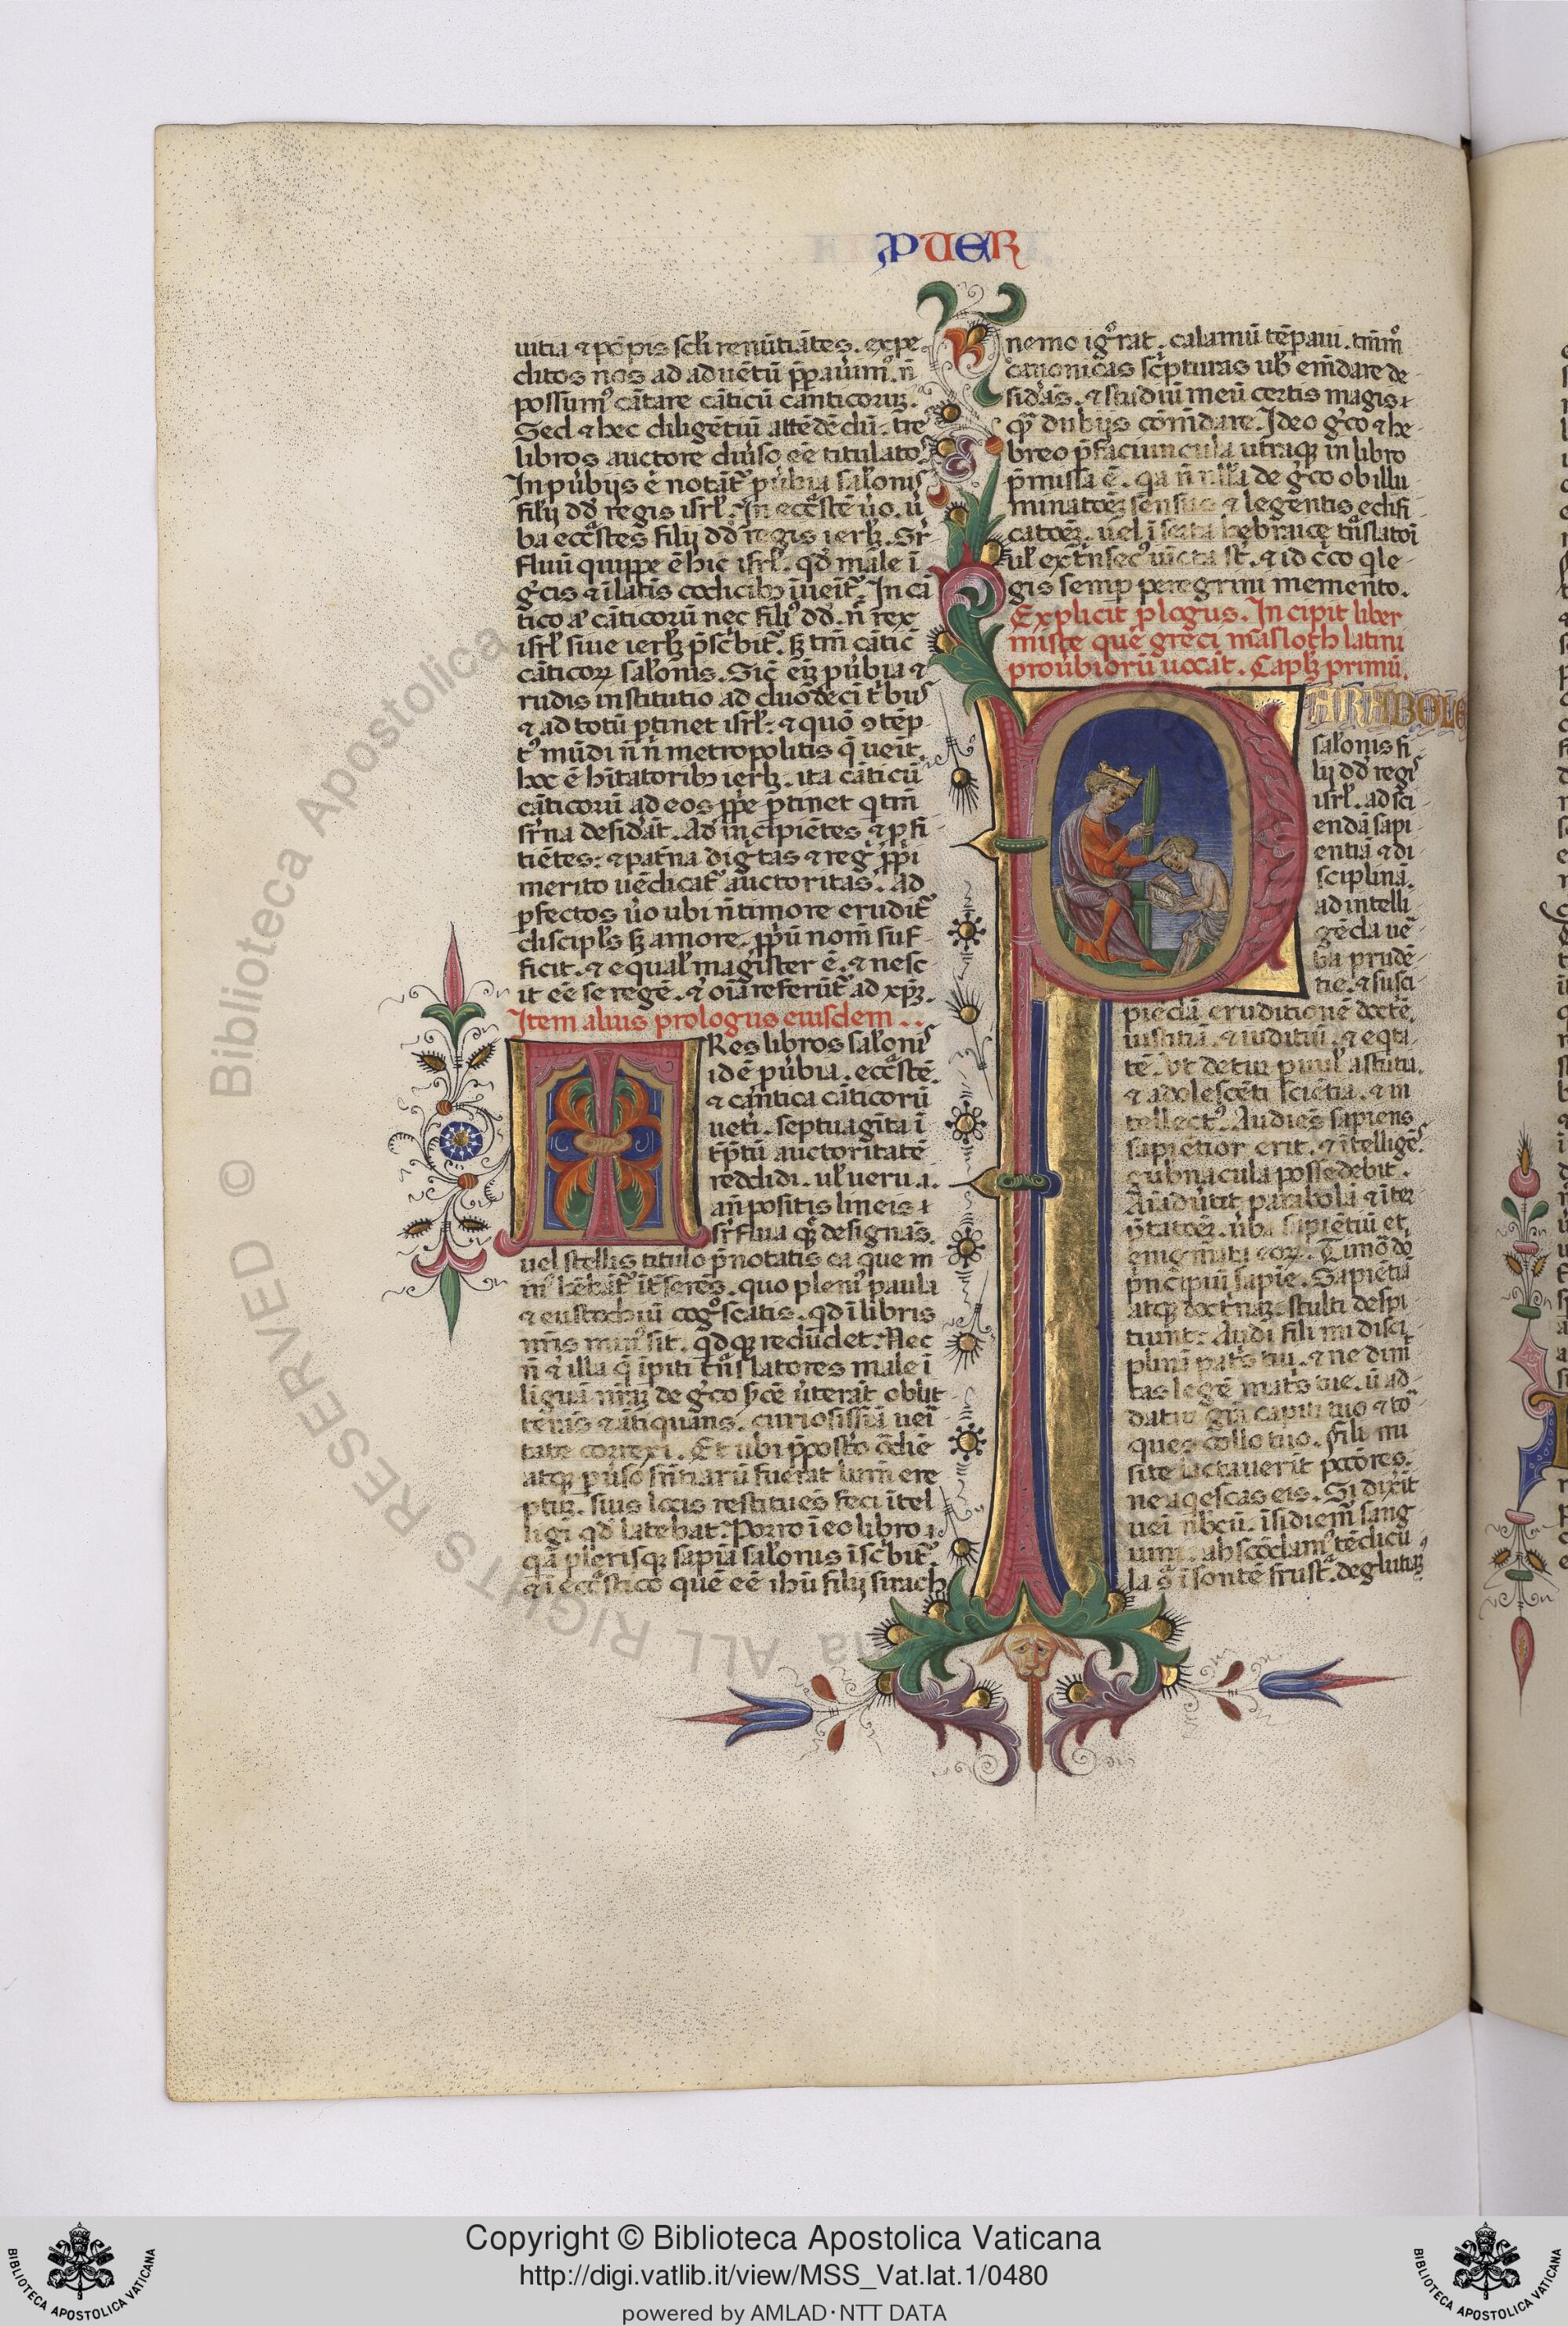 PUER
uitia ⁊ põpis scłi renũtiãtes. expe
ditos nos ad aduẽtũ p̃pauim᷒. ñ
possum᷒ cãtare cãticũ canticoruʒ.
Sed ⁊ hec diligẽtiũ attẽdẽdũ. tre᷒
libros auctore diũso eẽ titulato᷒.
In pũbijs ẽ notãt᷑ pũbia sałonis
filij dd̃ regis isrł. In ecc̃stẽ ũo. ũ
ba ecc̃stes filij dd̃ regis ierł. Sr̃
fluũ quippe ẽ hic isrł. qđ male ĩ
g̃cis ⁊ ĩ latis codicibʒ ĩuẽit᷑. In cã
tico aũ cãticorũ nec fili᷒ dd̃. ñ rex
isrł siue ierł p̃sc̃bit᷑. sʒ tm̃ cãtic̃
cãticoꝝ sałonis. Sic̃ eĩʒ pũbia ⁊
rudis institutio ad duodeci t̃bus
⁊ ad totũ ꝑtinet isrł: ⁊ quõ ꝯtẽp
t᷒ mũdi ñ ñ metropolitis q̃ ueĩt.
hoc ẽ hĩtatoribʒ ierł. ita cãticũ
cãticorũ ad eos ꝓpe ꝑtinet q tm̃
sr̃na desidãt. Ad incipiẽtes ⁊ ꝓfi
tiẽtes: ⁊ pat̃na dig̃tas ⁊ reg̃ ꝓpi
merito uẽdicat᷑ auctoritas. Ad
ꝑfectos ũo ubi ñ timore erudit᷑
discipłs sʒ amore. ꝓpũ nom̃ suf
ficit. ⁊ equał magister ẽ. ⁊ nesc
it eẽ se regẽ. ⁊ oĩa referũt᷑ ad xp̃ʒ.
Item alius prologus eiusdem..
TRes libros sałonis
id ẽ pũbia. ecc̃stẽ.
⁊ cantica cãticorũ
ueti. septuagĩta ĩ
t̃p̃tũ auctoritatẽ
reddidi. uł ueru.a.
añpositis lineis ⁊
sr̃flua quę̃ designãs.
uel stellis titulo p̃notatis ea que in
min᷒ hẽbãt᷑ ĩt̃serẽs. quo pleni᷒ paula
⁊ eustochiũ cog᷒scatis. qđ ĩ libris
nr̃is min᷒ sit. qđqʒ redũdet. Nec
ñ ⁊ illa q̃ ĩpiti t̃nslatores male ĩ
liguã nr̃aʒ de g̃co
tate correxi. Et ubi p̃posto õdiẽ
atqʒ pũso sñtiarũ fuerat lum̃ ere
ptuʒ. suis locis restituẽs feci ĩtel
ligi qđ latebat. Porro ĩ eo libro ⁊.
qã pleriqʒ sapiã sałonis ĩsc̃bit᷑.
⁊ ĩ ecc̃stico quẽ eẽ ihũ filij sirach
nemo ig᷒rat. calamũ tẽpaui. tm̃m᷒
canonicas sc̃pturas uł em̃dare de
sidãs. ⁊ studiũ meũ certis magis ⁊
q̃ dubijs cõm̃dare. Ideo g̃co ⁊ he
breo p̃faciuncula utraqʒ in libro
p̃missa ẽ. qa ñ nłła de g̃co ob illu
minatoẽʒ sensus ⁊ legentis edifi
catoẽʒ. uel ĩ hebraicę t̃nslatoĩ
uł ext̃nsec᷒ st̃. ⁊ id c̃co q le
gis semꝑ peregrini memento.
Explicit plogus. Incipit liber
misle quẽ greci mãsloth latini
proũbiorũ uocãt. Capłʒ primũ.
PARABOLE
sałonis fi
lij dd̃ regis
isrł. ad sci
endã sapi
entiã ⁊ di
sciplinã.
ad intelli
gẽda uẽ
ba prudẽ
tie. ⁊ susci
piẽdã eruditionẽ doctẽ.
iustitiã. ⁊ iuditiũ. ⁊ eqta
tẽ. Vt detur puuł astutia.
⁊ adolescẽti sciẽtia. ⁊ in
tellect᷒. Audiẽs sapiens
sapiẽtior erit. ⁊ ĩtelligẽs.
gubnacula possidebit.
Aĩaduẽtit parabolã ⁊ ĩter
p̃tatoẽʒ. ũba sapiẽtiũ et
enigmata eoꝝ. Timõ dõ
p̃ncipiũ sapĩe. Sapiẽtiã
atqʒ doct̃naʒ stulti despi
tiunt. Audi fili mi disci
plinã pat̃s tui. ⁊ ne dimi
tas legẽ mat̃s tue. ũ ad
datur gr̃a capiti tuo ⁊ tõ
ques collo tuo. Fili mi
si te lactauerit pctõres.
ne aq̃escas eis. Si dixĩt
uei ñbcũ. ĩsidiem᷒ sang
uini. abscõdam᷒ tẽdicũ
la 9̃ ĩsontẽ frust᷑. deglutiaʒ
Copyright © Biblioteca Apostolica Vaticana
http://digi.vatlib.it/view/MSS_Vat.lat.1/0480
powered by AMLAD·NTT DATA
BIBLIOTECA APOSTOLICA VATICANA
BIBLIOTECA APOSTOLICA VATICANA
© Biblioteca Apostolica Vaticana ALL RIGHTS RESERVED